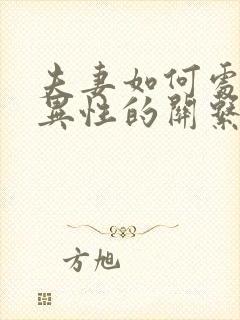 夫妻如何
異性的關
方旭